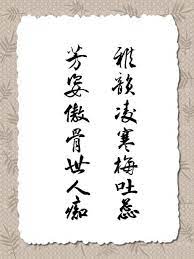 雅韵凌寒梅吐蕊
芳姿傲骨世人痴